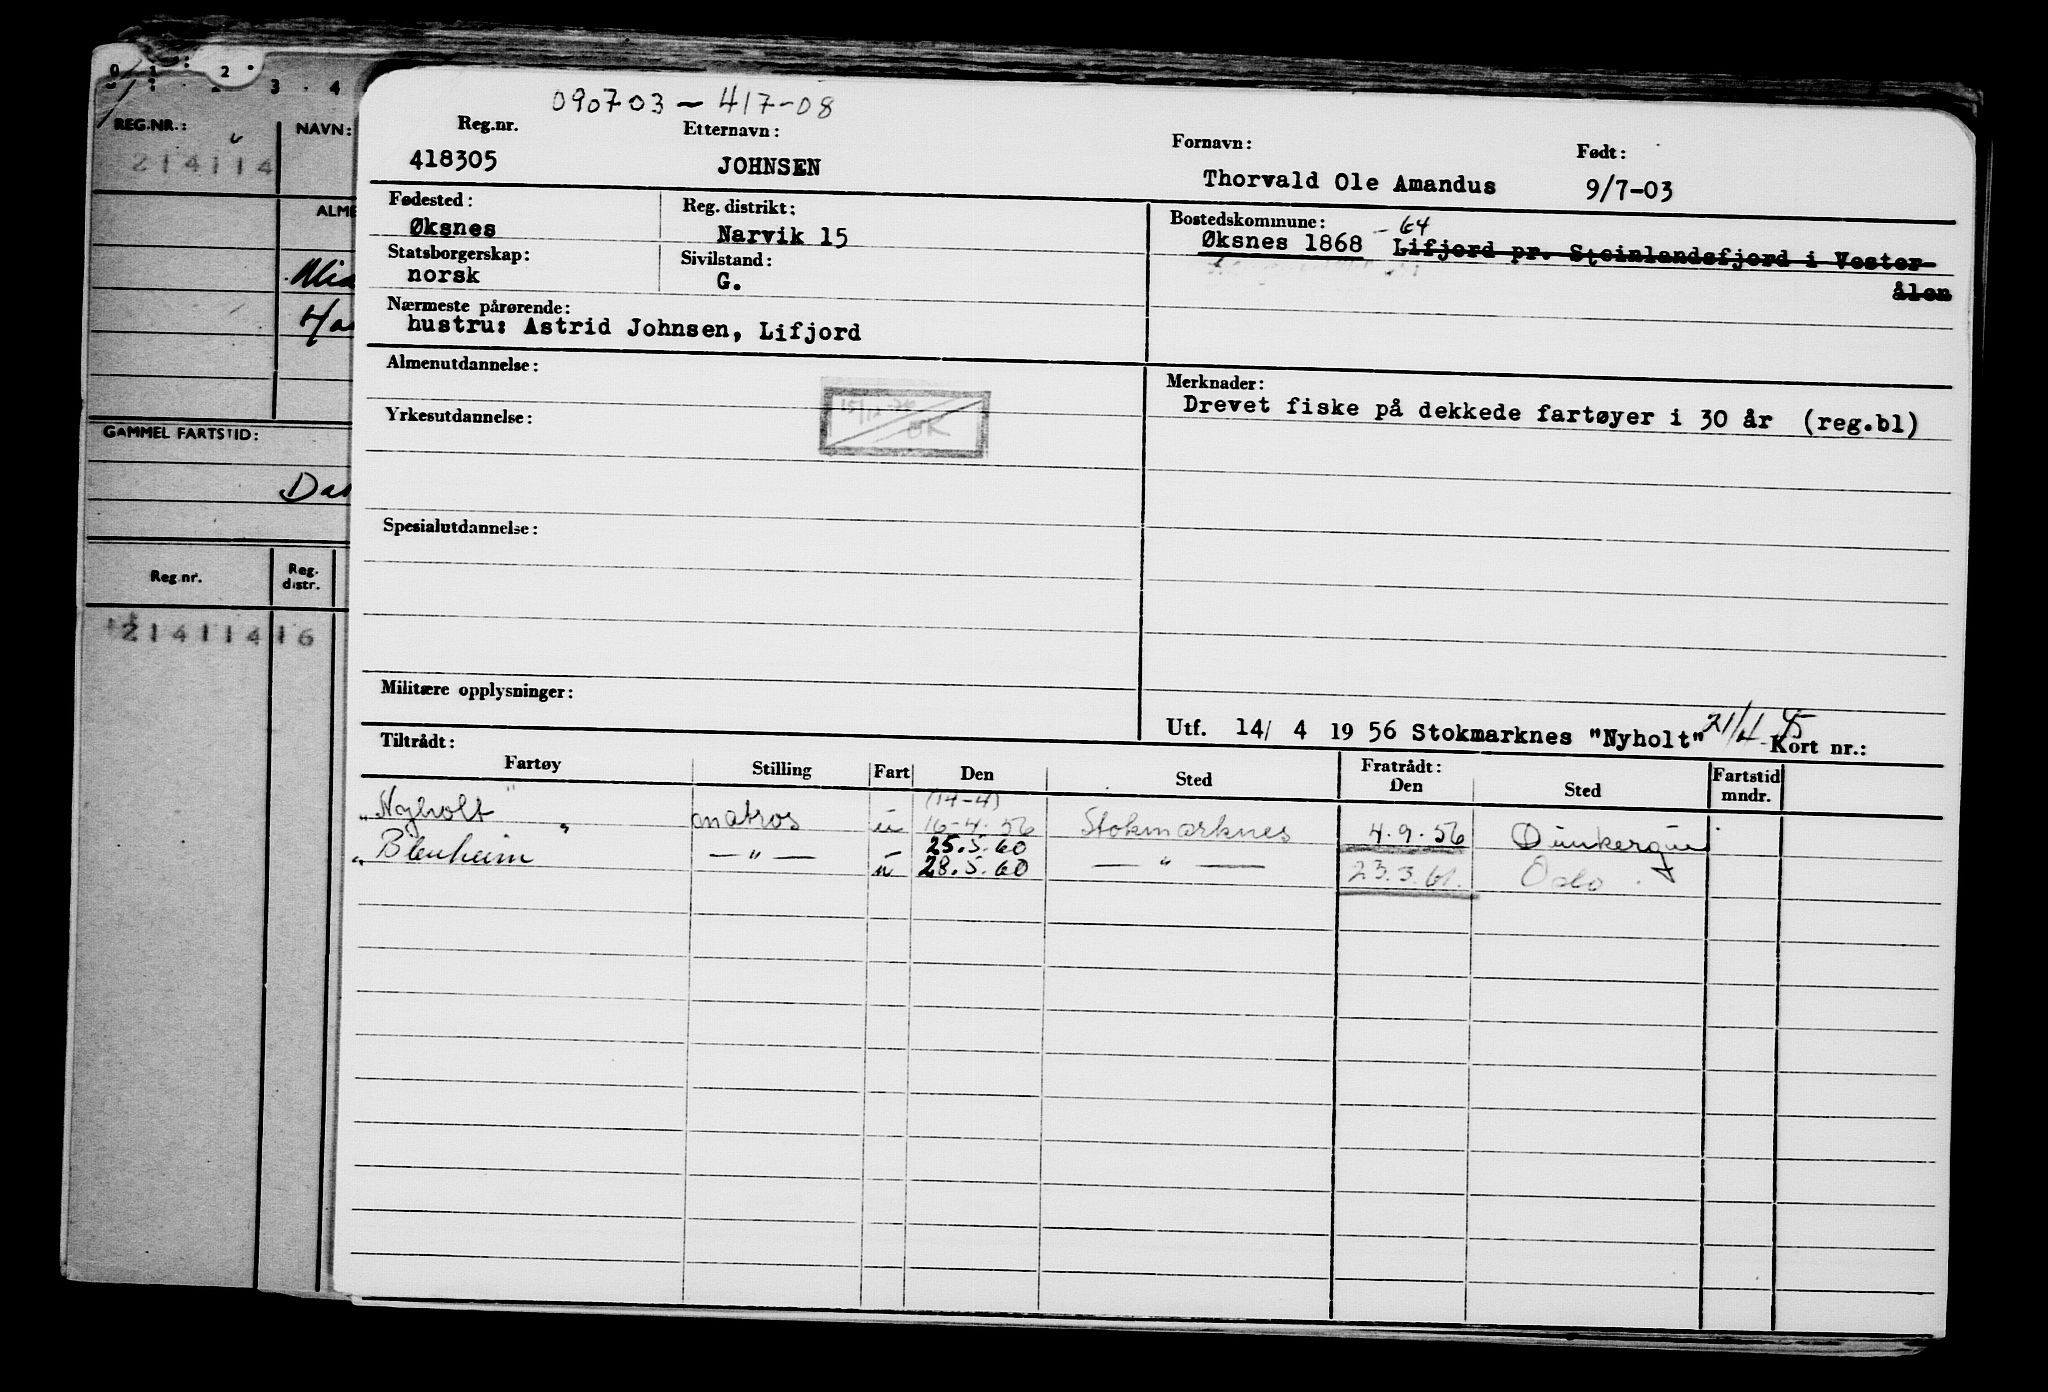 090703 - 417-08
Reg.nr. Etternavn: Fornavn: Født:
418305 JOHNSEN Thorvald Ole Amandus 9/7-03
Fødested: Reg. distrikt: Bostedskommune: - 64
Øksnes Narvik 15 Øksnes 1868 Lifjord pr. Steinlandsfjord i Vester-
ålen
Statsborgerskap: Sivilstand:
norsk G.
Nærmeste pårørende:
hustru: Astrid Johnsen, Lifjord
Almenutdannelse: Merknader:
Drevet fiske på dekkede fartøyer i 30 år (reg.bl)
Yrkesutdannelse:
OK
Spesialutdannelse:
Militære opplysninger:
Utf. 14/ 4 19 56 Stokmarknes "Nyholt" Kort nr.:
Tiltrådt: Fratrådt:
Fartøy Stilling Fart Den Sted Den Sted Fartstid mndr.
(14-4)
"Nyholt" matros u 16-4.56 Stokmarknes 4.9.56 Dunkerque
25.5.60
"Blenheim" — " — u 28.5.60 — " — 23.3.61. Oslo
0 1 2 3 4
REG.NR.: NAVN:
214114
ALME
GAMMEL FARTSTID:
Reg.nr. Reg. distr.
214114 16